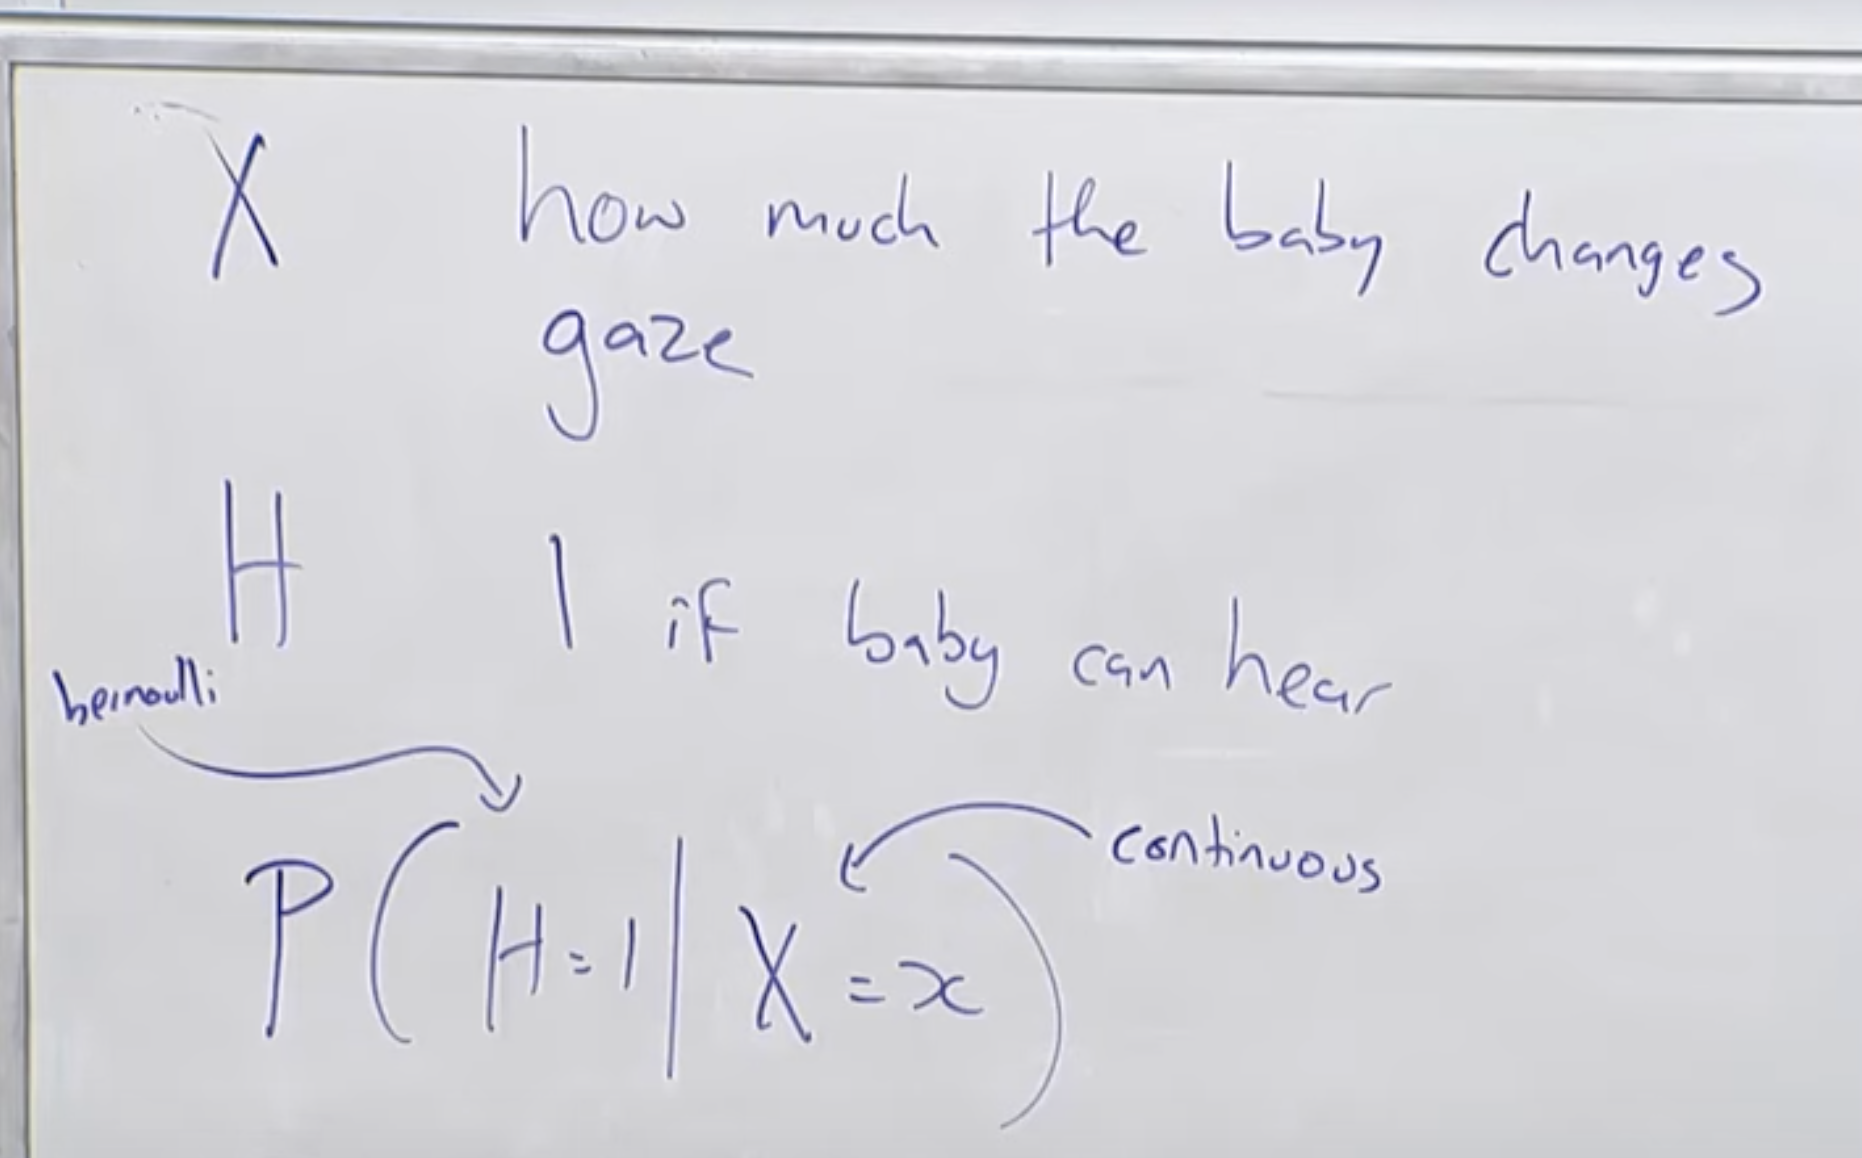 X how much the baby changes
gaze
H 1 if baby can hear
bernoulli
continuous
P(H=1|X=x)